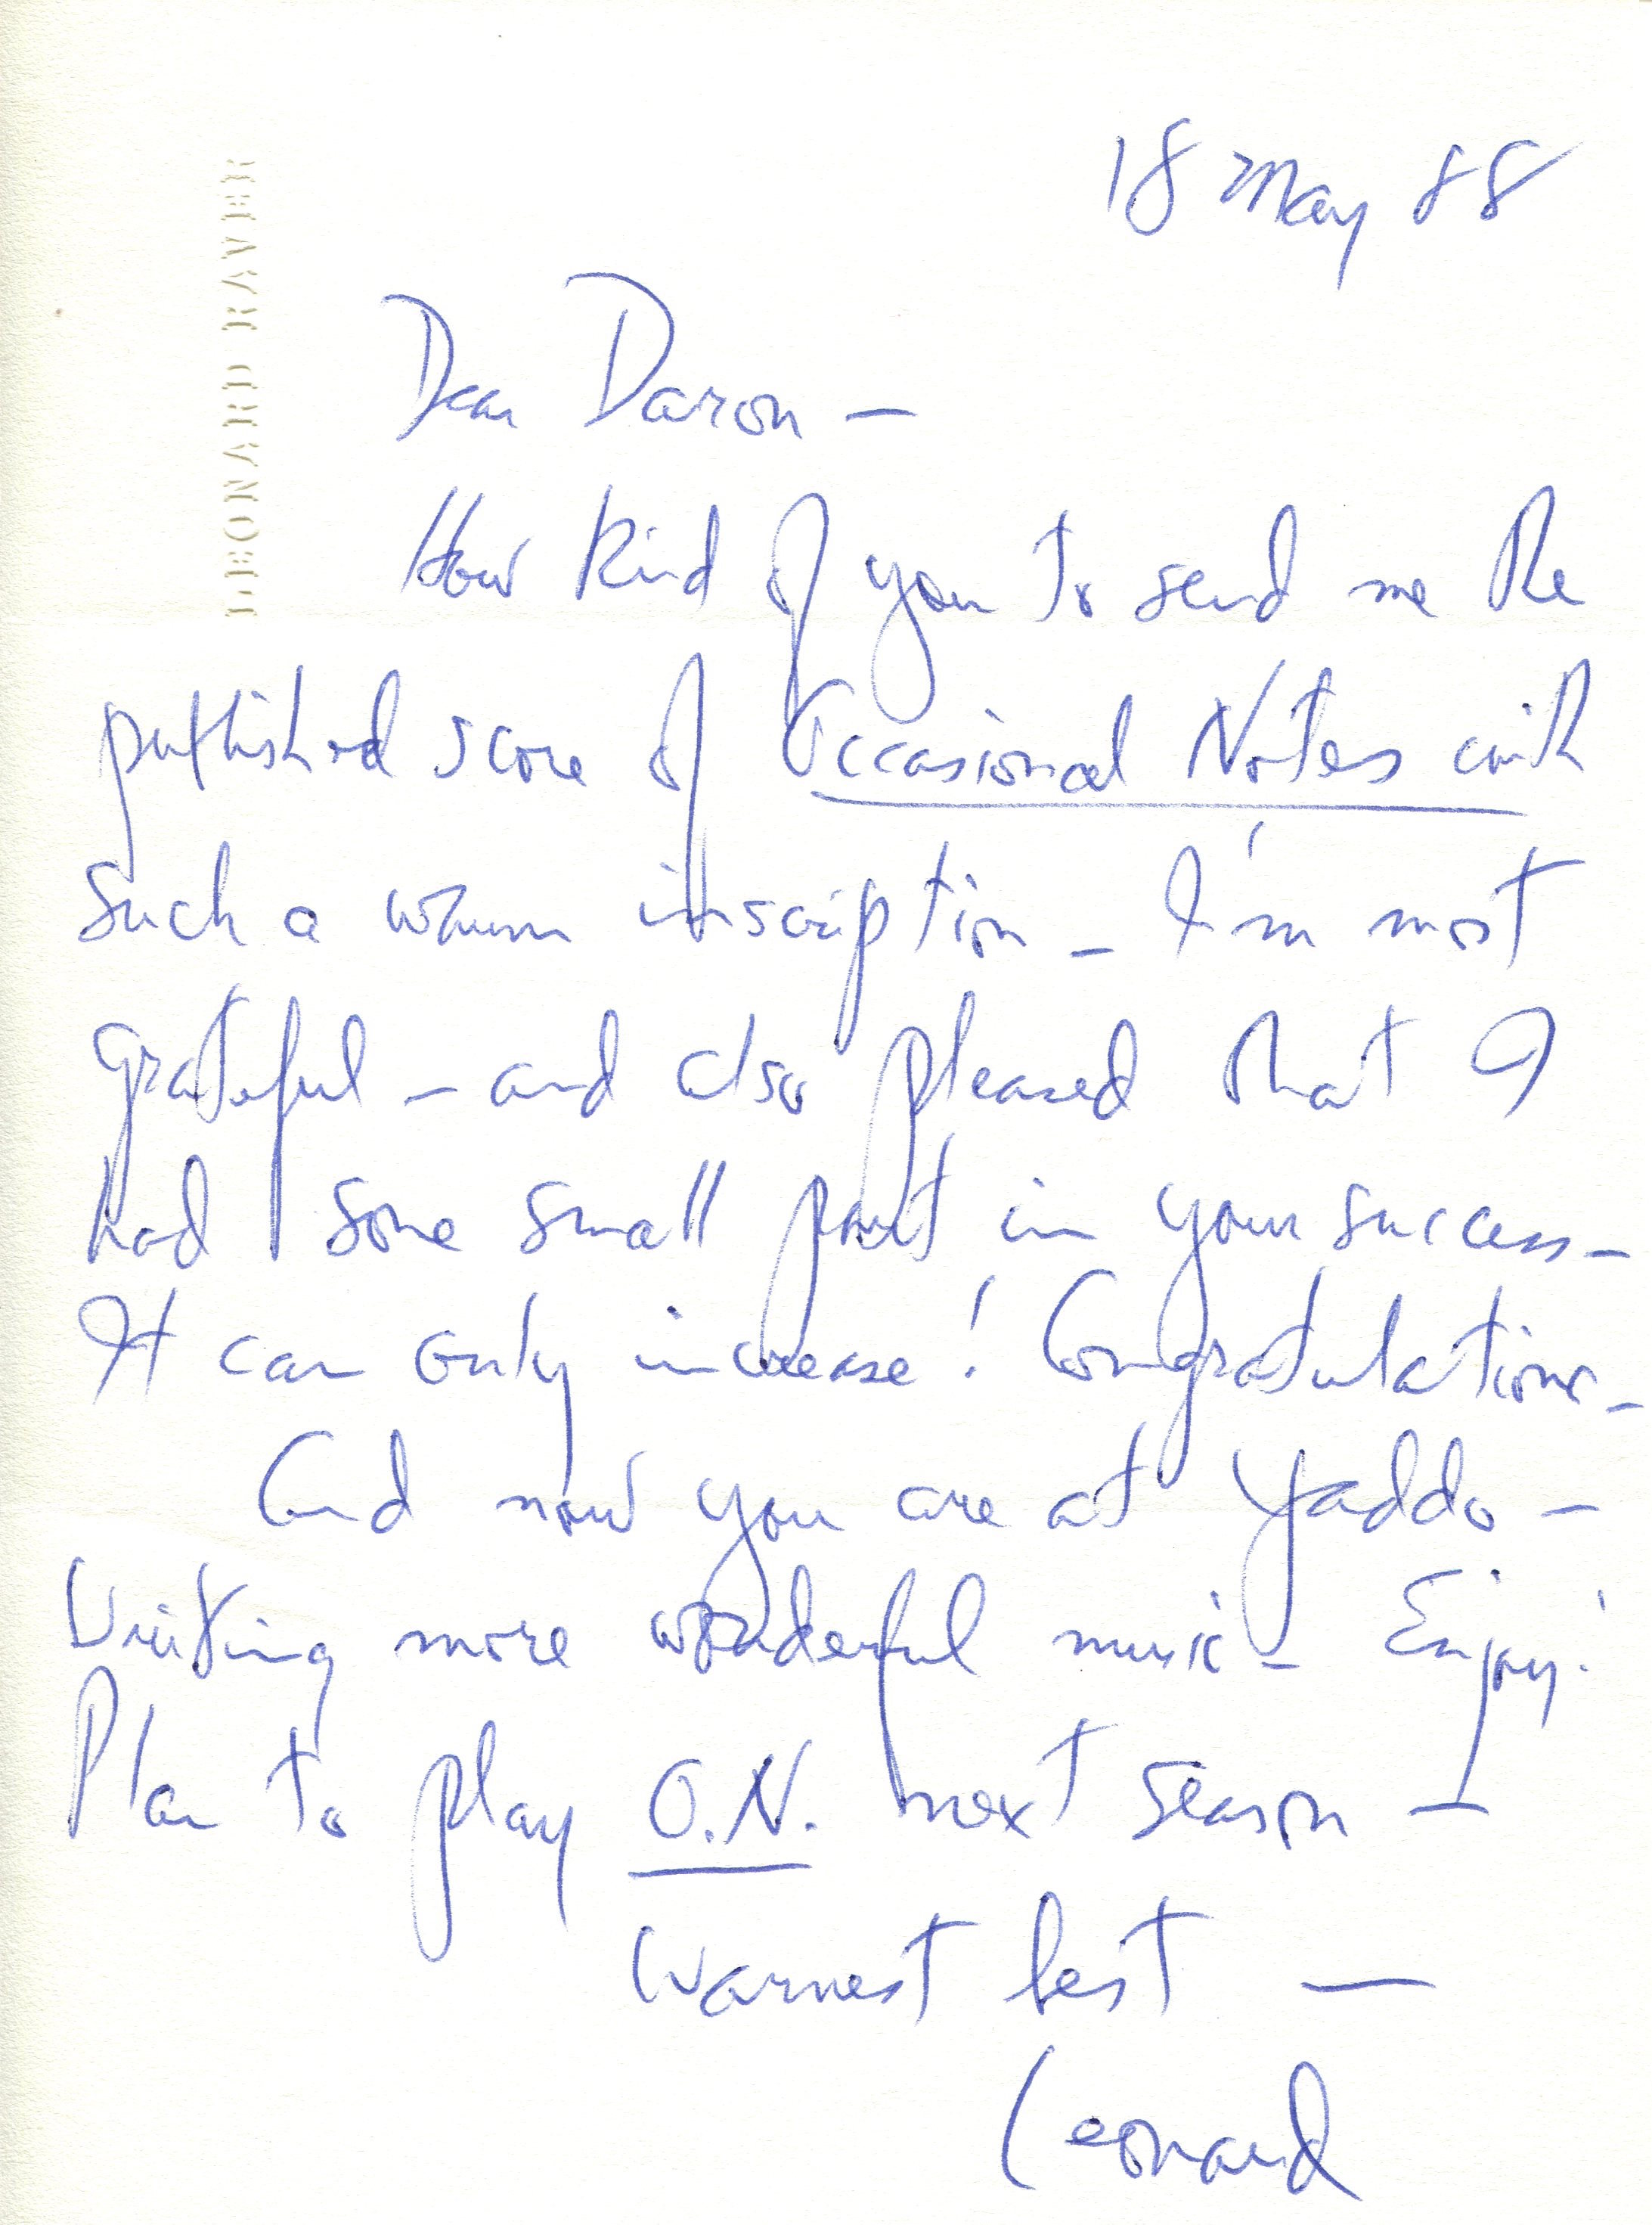 LEONARD RAVER
18 May 88
Dear Daron —
How kind of you to send me the
published score of Occasional Notes with
such a warm inscription – I'm most
grateful – and also pleased that I
had some small part in your success –
It can only increase! Congratulations –
And now you are at Yaddo –
Writing more wonderful music – Enjoy!
Plan to play O.N. next season –
Warmest best —
Leonard